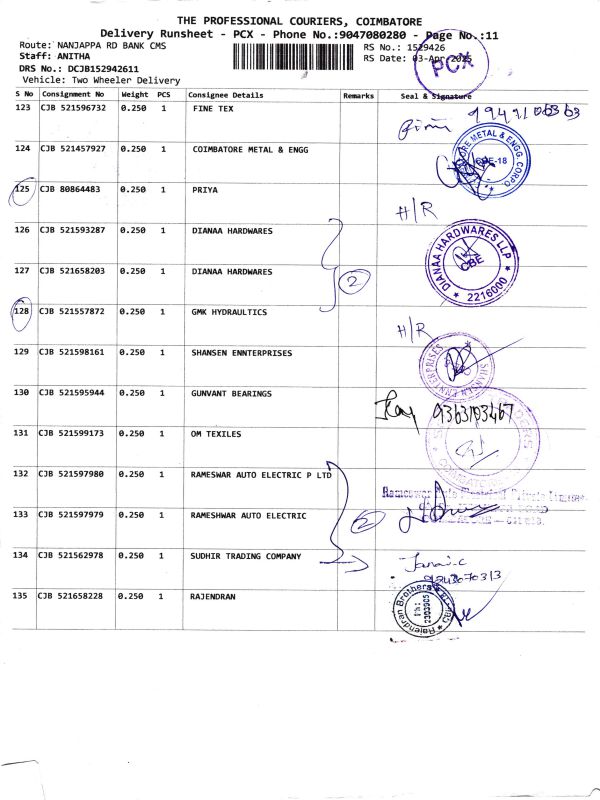 THE PROFESSIONAL COURIERS, COIMBATORE
Delivery Runsheet - PCX - Phone No.:9047080280 - Page No.:11
Route: NANJAPPA RD BANK CMS
RS No.: 1529426
Staff: ANITHA
RS Date: 03-Apr-2025
PCX
DRS No.: DCJB152942611
Vehicle: Two Wheeler Delivery
S No Consignment No Weight PCS Consignee Details Remarks Seal & Signature
123 CJB 521596732 0.250 1 FINE TEX
124 CJB 521457927 0.250 1 COIMBATORE METAL & ENGG
METAL & ENGG CORPO
125 CJB 80864483 0.250 1 PRIYA H/R
126 CJB 521593287 0.250 1 DIANAA HARDWARES
DIANAA HARDWARES LLP
CBE
2216000
127 CJB 521658203 0.250 1 DIANAA HARDWARES
2
128 CJB 521557872 0.250 1 GMK HYDRAULTICS H/R
129 CJB 521598161 0.250 1 SHANSEN ENNTERPRISES
130 CJB 521595944 0.250 1 GUNVANT BEARINGS 9363103467
131 CJB 521599173 0.250 1 OM TEXILES
132 CJB 521597980 0.250 1 RAMESWAR AUTO ELECTRIC P LTD
133 CJB 521597979 0.250 1 RAMESHWAR AUTO ELECTRIC
2
134 CJB 521562978 0.250 1 SUDHIR TRADING COMPANY
135 CJB 521658228 0.250 1 RAJENDRAN
Rajendran Brothers
Ph:
2303905